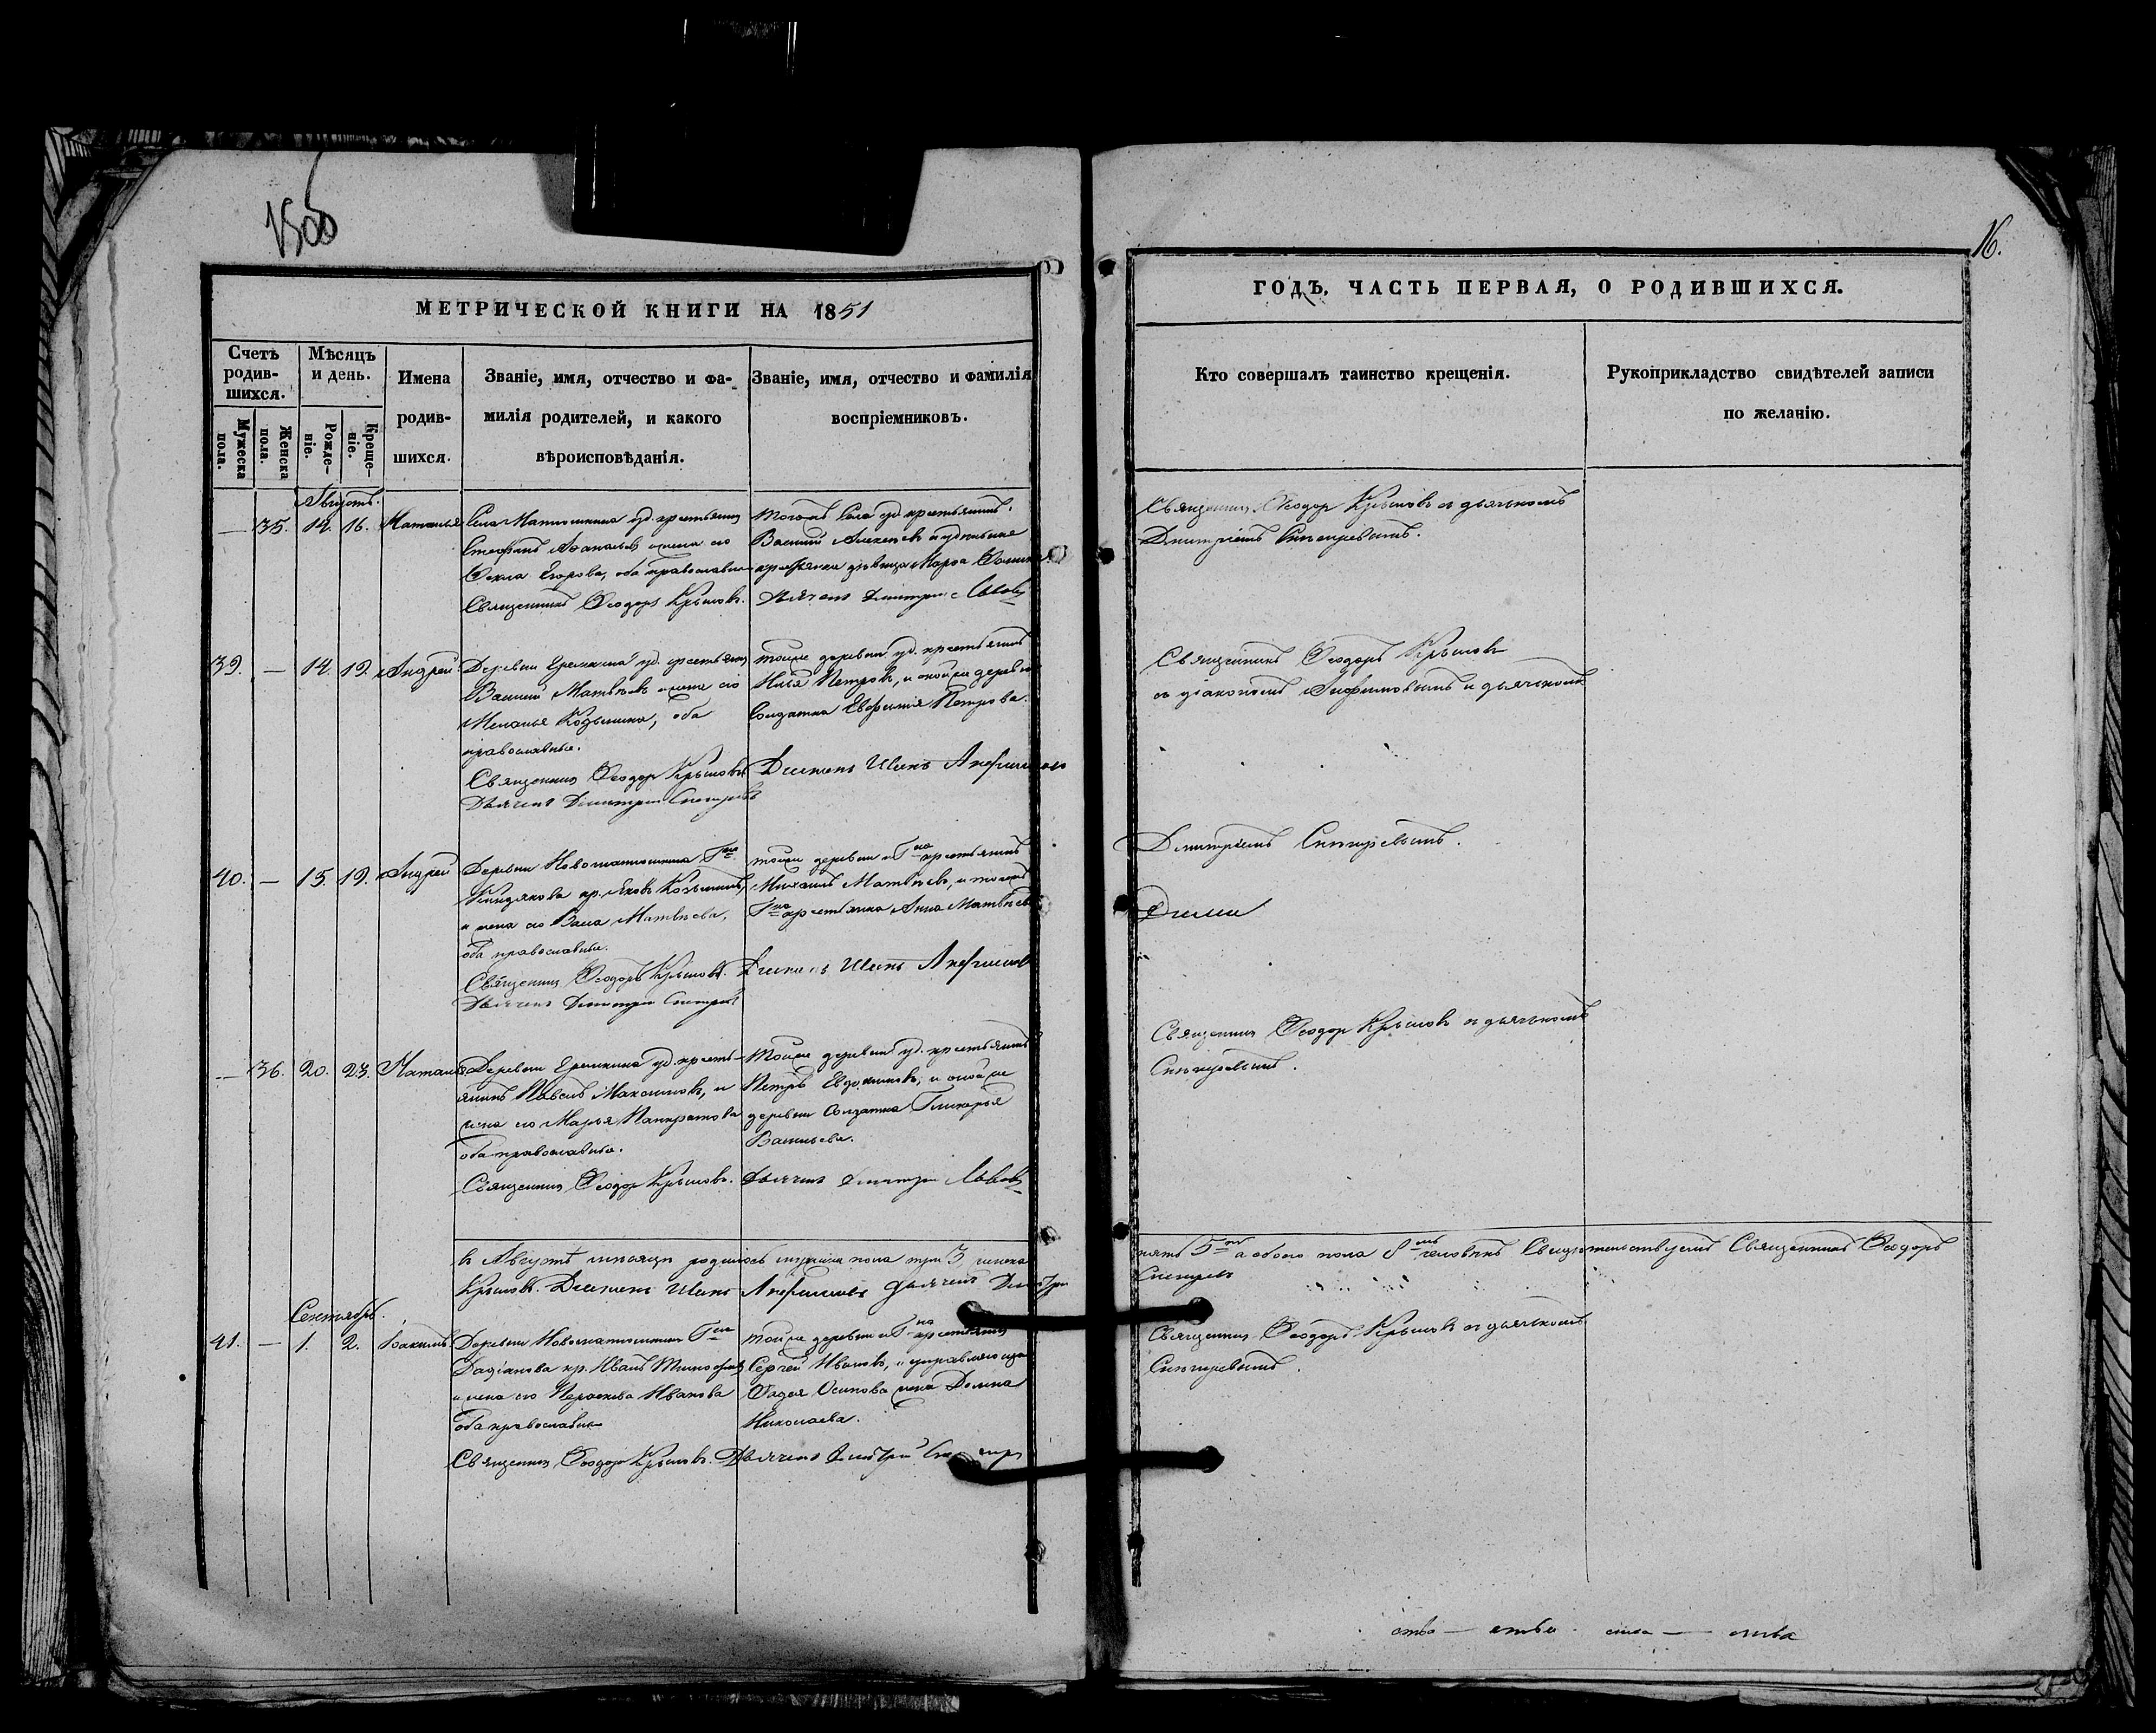 16.
МЕТРИЧЕСКОЙ КНИГИ НА 1851
ГОДЪ, ЧАСТЬ ПЕРВАЯ, О РОДИВШИХСЯ.
Счетъ родив-шихся.
Мужеска пола.
Женска пола.
Мѣсяцъ и день.
Рожде-ніе.
Креще-ніе.
Имена родив-шихся.
Званіе, имя, отчество и фа-
милія родителей, и какого
вѣроисповѣданія.
Званіе, имя, отчество и фамилія
воспріемниковъ.
Кто совершалъ таинство крещенія.
Рукоприкладство свидѣтелей записи
по желанію.
Августъ.
— 35. 14. 16. Наталья
Села Матюшкина уд. крестьянинъ
Стефанъ Афанасьевъ и жена его
Фекла Егорова, оба православные
Священникъ Феодоръ Крыловъ.
тогожъ села уд. крестьянинъ
Василій Алексѣевъ и удѣльная
крестьянка дѣвица Марѳа
Дьячекъ Димитрій
Священникъ Феодоръ Крыловъ съ дьячкомъ
Димитріемъ Снегиревымъ.
39. — 14. 19. Андрей
Деревни Еремкина уд. крестьянинъ
Василій Матвѣевъ и жена его
Меланья Козьмина, оба
православные.
Священникъ Феодоръ Крыловъ
Дьячекъ Димитрій Снегиревъ
тойже деревни уд. крестьянинъ
Илья Петровъ, и тойже деревни
солдатка Евфимія Петрова.
Диаконъ Иванъ Анфимовъ
Священникъ Феодоръ Крыловъ
съ діакономъ Анфимовымъ и дьячкомъ
Димитріемъ Снегиревымъ.
40. — 15. 19. Андрей
Деревни Новоматюшкина Гна
кр. Яковъ Козьминъ,
и жена его Васса Матвѣева,
оба православные.
Священникъ Феодоръ Крыловъ.
Дьячекъ Димитрій Снегиревъ
тойже деревни и Гна крестьянинъ
Михаилъ Матвѣевъ, и тогожъ
Гна крестьянка Анна Матвѣева
Диаконъ Иванъ Анфимовъ
— 36. 20. 23. Наталья
Деревни Еремкина уд. кресть-
янинъ Павелъ Максимовъ, и
жена его Марья Панкратова
оба православные.
Священникъ Феодоръ Крыловъ.
тойже деревни уд. крестьянинъ
Петръ Евдокимовъ, и тойже
деревни солдатка Гликерья
Васильева.
Дьячекъ Димитрій
Священникъ Феодоръ Крыловъ съ дьячкомъ
Снегиревымъ.
въ Августѣ мѣсяцѣ родилось мужска пола три 3, женска
пять 5ть а обоего пола 8мь человѣкъ Свидѣтельствуемъ Священникъ Феодоръ
Крыловъ. Диаконъ Иванъ Анфимовъ Дьячекъ Димитрій
Снегиревъ
Сентябрь.
41. — 1. 2. Іоакимъ
Деревни Новоматюшкина Гна
кр. Иванъ Тимофеевъ
и жена его Параскева Иванова
оба православные
Священникъ Феодоръ Крыловъ.
тойже деревни и Гна крестьянинъ
Сергей Ивановъ, и управляющаго
Фадея Осипова жена Домна
Николаева.
Дьячекъ Димитрій
Священникъ Феодоръ Крыловъ съ дьячкомъ
Снегиревымъ.